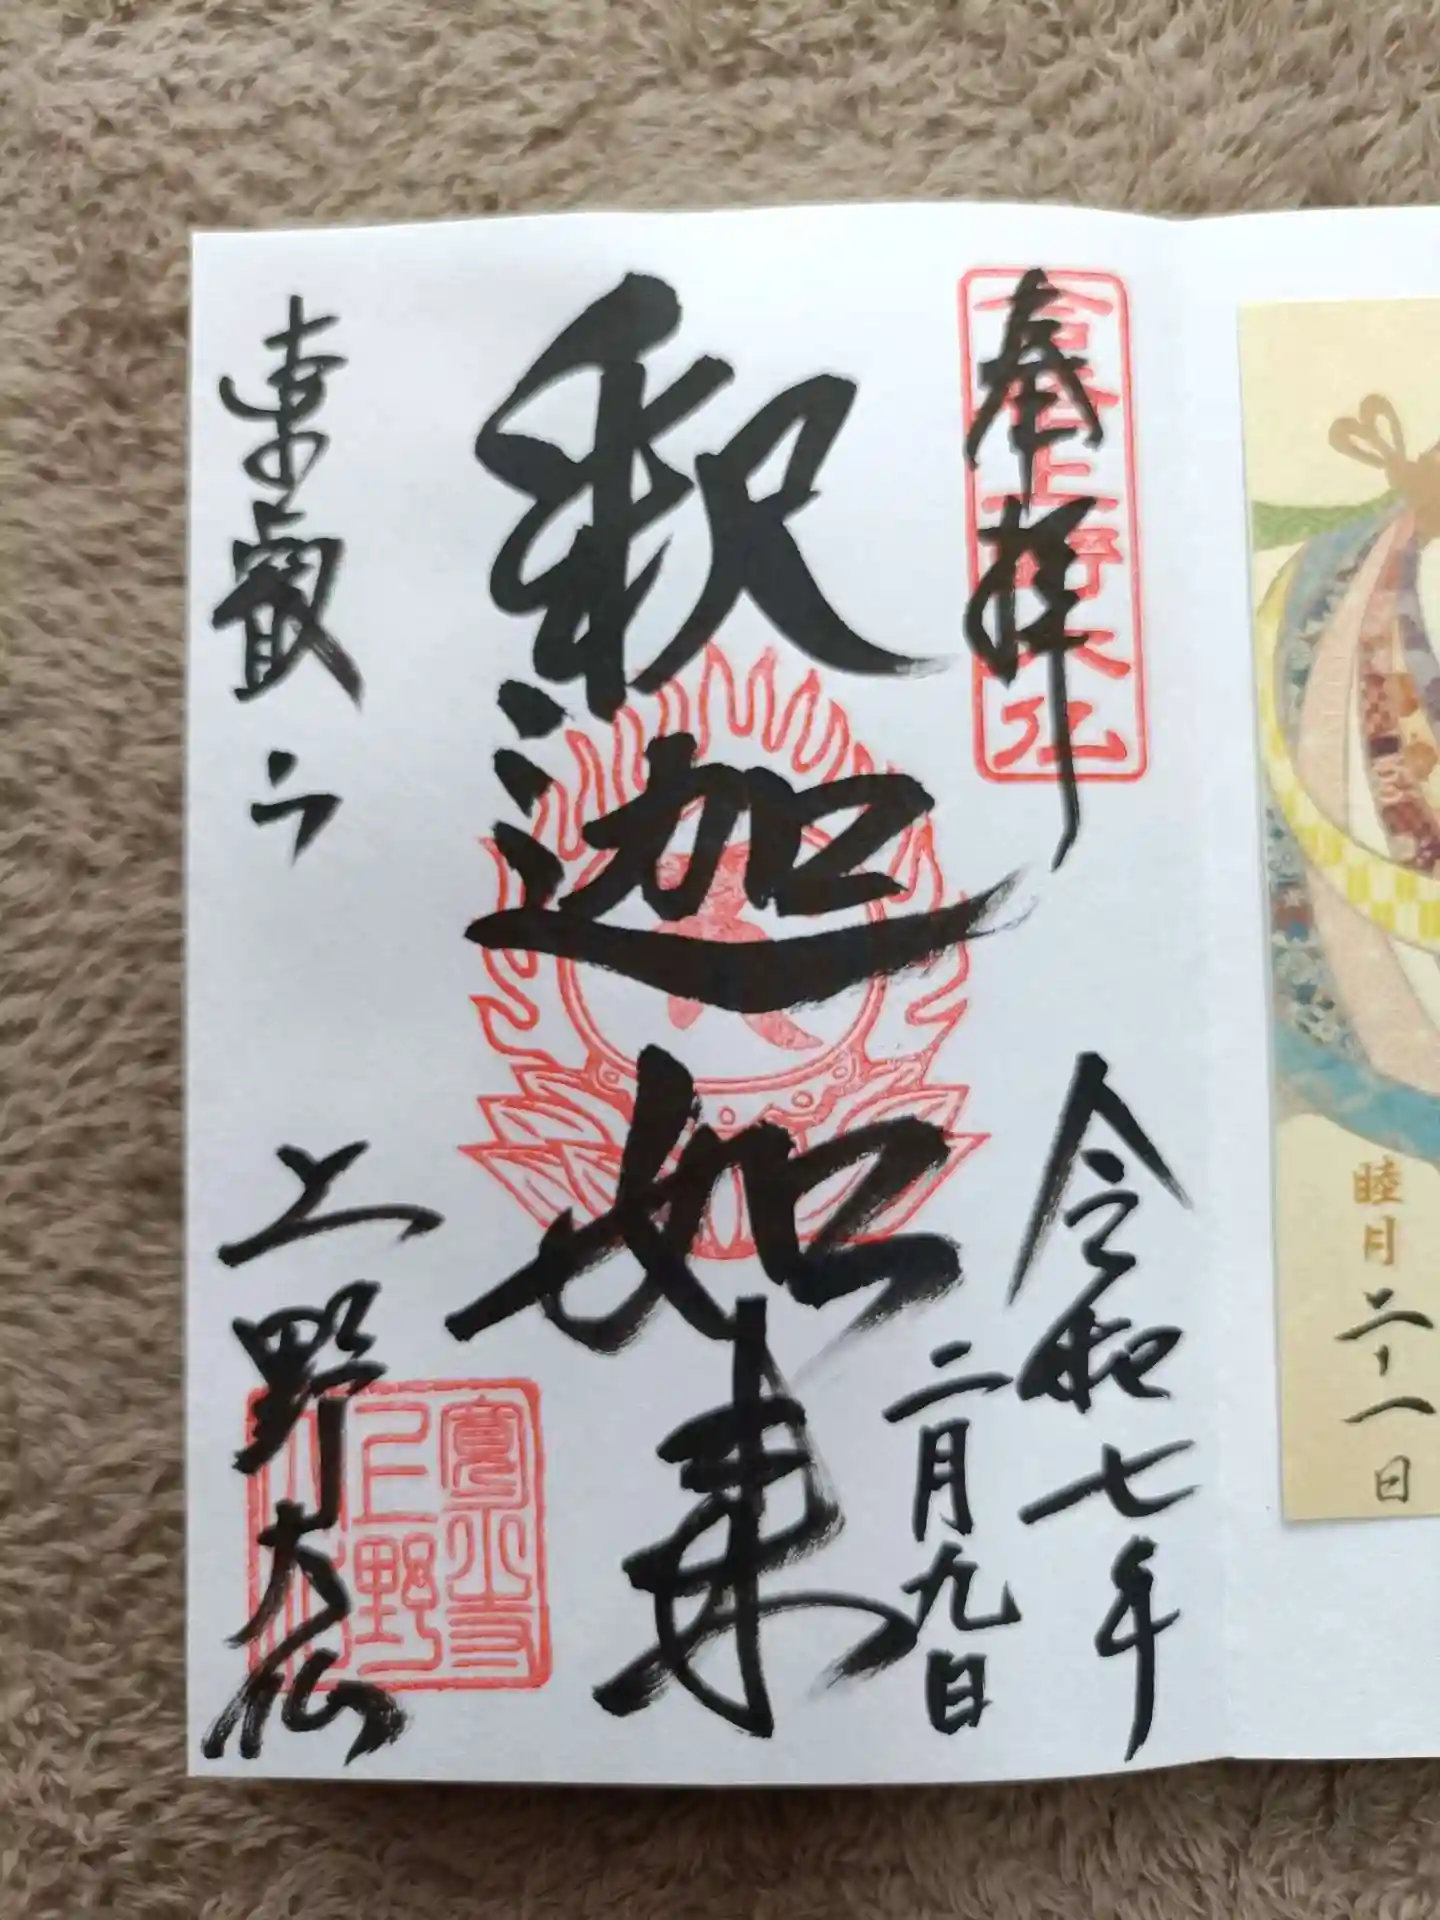 睦月二十一日
合格上野大仏
奉拝
令和七年
二月九日
釈迦如来
東叡山
上野大仏
寛永寺
上野